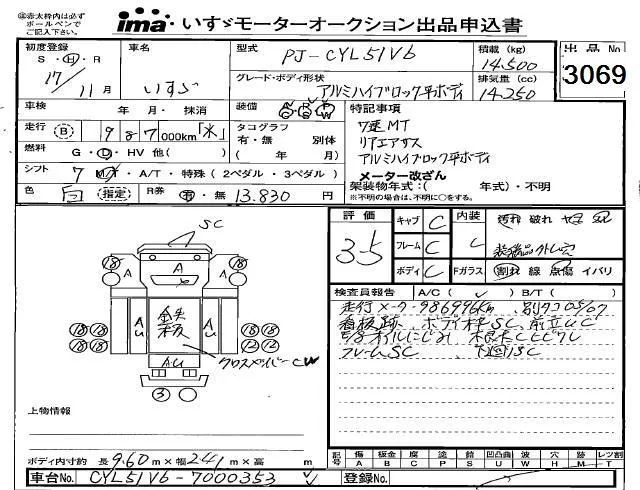 ㊟赤太枠内は必ず
ボールペンで
ご記入下さい。
ima いすゞモーターオークション出品申込書
初度登録 車名 型式 PJ-CYL51V6 積載(kg) 14,500
S・H・R 17/11月 いすゞ グレード・ボディ形状 アルミハイブロック平ボディ 排気量(cc) 14,250
出品No 3069
車検 年 月・抹消 装備 特記事項
走行 B 987,000km「水」 タコグラフ 有・無 別体 (年 月) 7速MT
リアエアサス
アルミハイブロック平ボディ
燃料 G・D・HV 他( ) メーター改ざん
シフト 7 M/T・A/T・特殊(2ペダル・3ペダル) 架装物年式:( 年式)・不明
※不明の場合は、不明に○をする。
色 白 指定 R券 有・無 13,830円
評価 3.5 キャブ C 内装 C 汚れ 破れ ヤニ
フレーム C
ボディ C Fガラス 割れ 線 点傷 イバリ
検査員報告 A/C( ✓ ) B/T( )
走行メーター986996km
看板跡、ボディ枠SC、前立UC
オイルにじみ
フレームSC 下廻りSC
SC
18 18
A A A
18 18
鉄板
Au Au
Au
18 18 18 18
18 18 12 12
クロスメンバーCW
3
上物情報
ボディ内寸約 長 9.60m×幅 2.41m×高 m
記号 傷 板金 腐 塗 錆 凹凸曲 波 穴 跡 レンズ割
A B C P S U W H M T
車台No. CYL51V6-7000353 登録No.